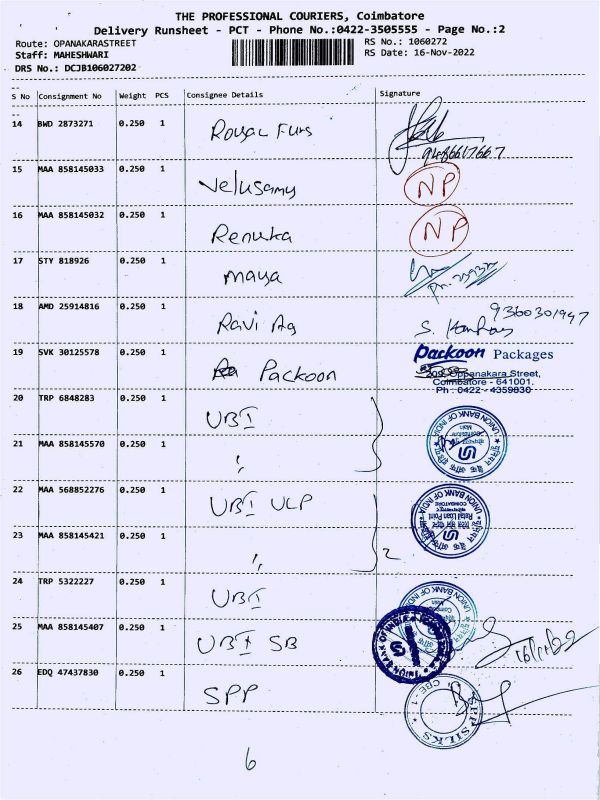 THE PROFESSIONAL COURIERS, Coimbatore
Delivery Runsheet - PCT - Phone No.:0422-3505555 - Page No.:2
Route: OPANAKARASTREET
RS No.: 1060272
Staff: MAHESHWARI
RS Date: 16-Nov-2022
DRS No.: DCJB106027202
S No Consignment No Weight PCS Consignee Details Signature
14 BWD 2873271 0.250 1 Royal Furs
9486617667
15 MAA 858145033 0.250 1 Velusamy NP
16 MAA 858145032 0.250 1 Renuka NP
17 STY 818926 0.250 1 Maya
18 AMD 25914816 0.250 1 Ravi Ag 9360301947
19 SVK 30125578 0.250 1 Packoon Packoon Packages
Oppanakara Street,
Coimbatore - 641001.
Ph : 0422 - 4359830
20 TRP 6848283 0.250 1 UBI
UNION BANK OF INDIA
21 MAA 858145570 0.250 1 "
22 MAA 568852276 0.250 1 UBI ULP
UNION BANK OF INDIA
COIMBATORE
Retail Loan Point
23 MAA 858145421 0.250 1 " 2
24 TRP 5322227 0.250 1 UBI
UNION BANK OF INDIA
25 MAA 858145407 0.250 1 UBI SB
UNION BANK OF INDIA
26 EDQ 47437830 0.250 1 SPP
SPP SILKS
CBE - 1
6